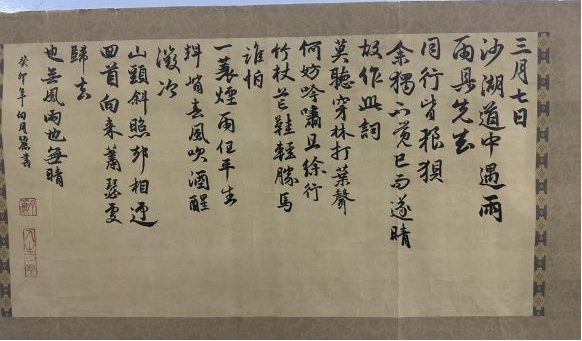 三月七日
沙湖道中遇雨
雨具先去
同行皆狼狽
余獨不覺已而遂晴
故作此詞
莫聽穿林打葉聲
何妨吟嘯且徐行
竹杖芒鞋輕勝馬
誰怕
一蓑煙雨任平生
料峭春風吹酒醒
微冷
山頭斜照卻相迎
回首向來蕭瑟處
歸去
也無風雨也無晴
癸卯年月書